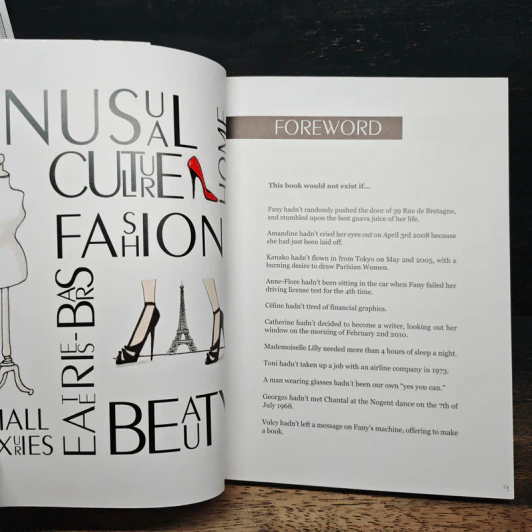 UNUSUAL
CULTURE
HOME
FASHION
EATERIES-BARS
SMALL
LUXURIES
BEAUTY
FOREWORD
This book would not exist if...
Fany hadn't randomly pushed the door of 39 Rue de Bretagne,
and stumbled upon the best guava juice of her life.
Amandine hadn't cried her eyes out on April 3rd 2008 because
she had just been laid off.
Kanako hadn't flown in from Tokyo on May 2nd 2005, with a
burning desire to draw Parisian Women.
Anne-Flore hadn't been sitting in the car when Fany failed her
driving license test for the 4th time.
Céline hadn't tired of financial graphics.
Catherine hadn't decided to become a writer, looking out her
window on the morning of February 2nd 2010.
Mademoiselle Lilly needed more than 4 hours of sleep a night.
Toni hadn't taken up a job with an airline company in 1973.
A man wearing glasses hadn't been our own "yes you can."
Georges hadn't met Chantal at the Nogent dance on the 7th of
July 1968.
Volcy hadn't left a message on Fany's machine, offering to make
a book.